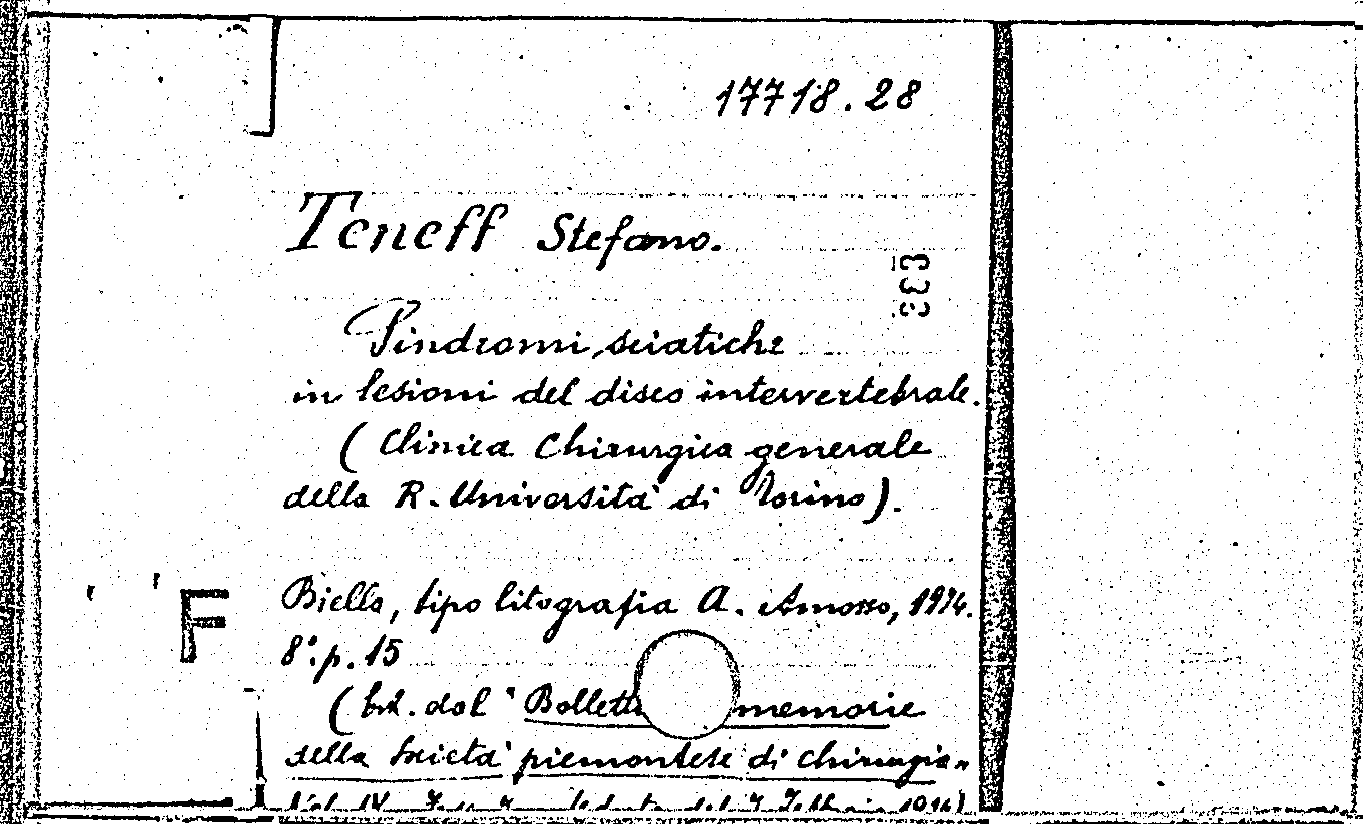 17718.28
Teneff Stefano.
333
Sindromi sciatiche
in lesioni del disco intervertebrale.
( Clinica Chirurgica generale
della R. Università di Torino).
F
Biella, tipo litografia A. Amosso,
8°. p. 15
( Est. dal " memorie
della Società piemontese di chirurgia"